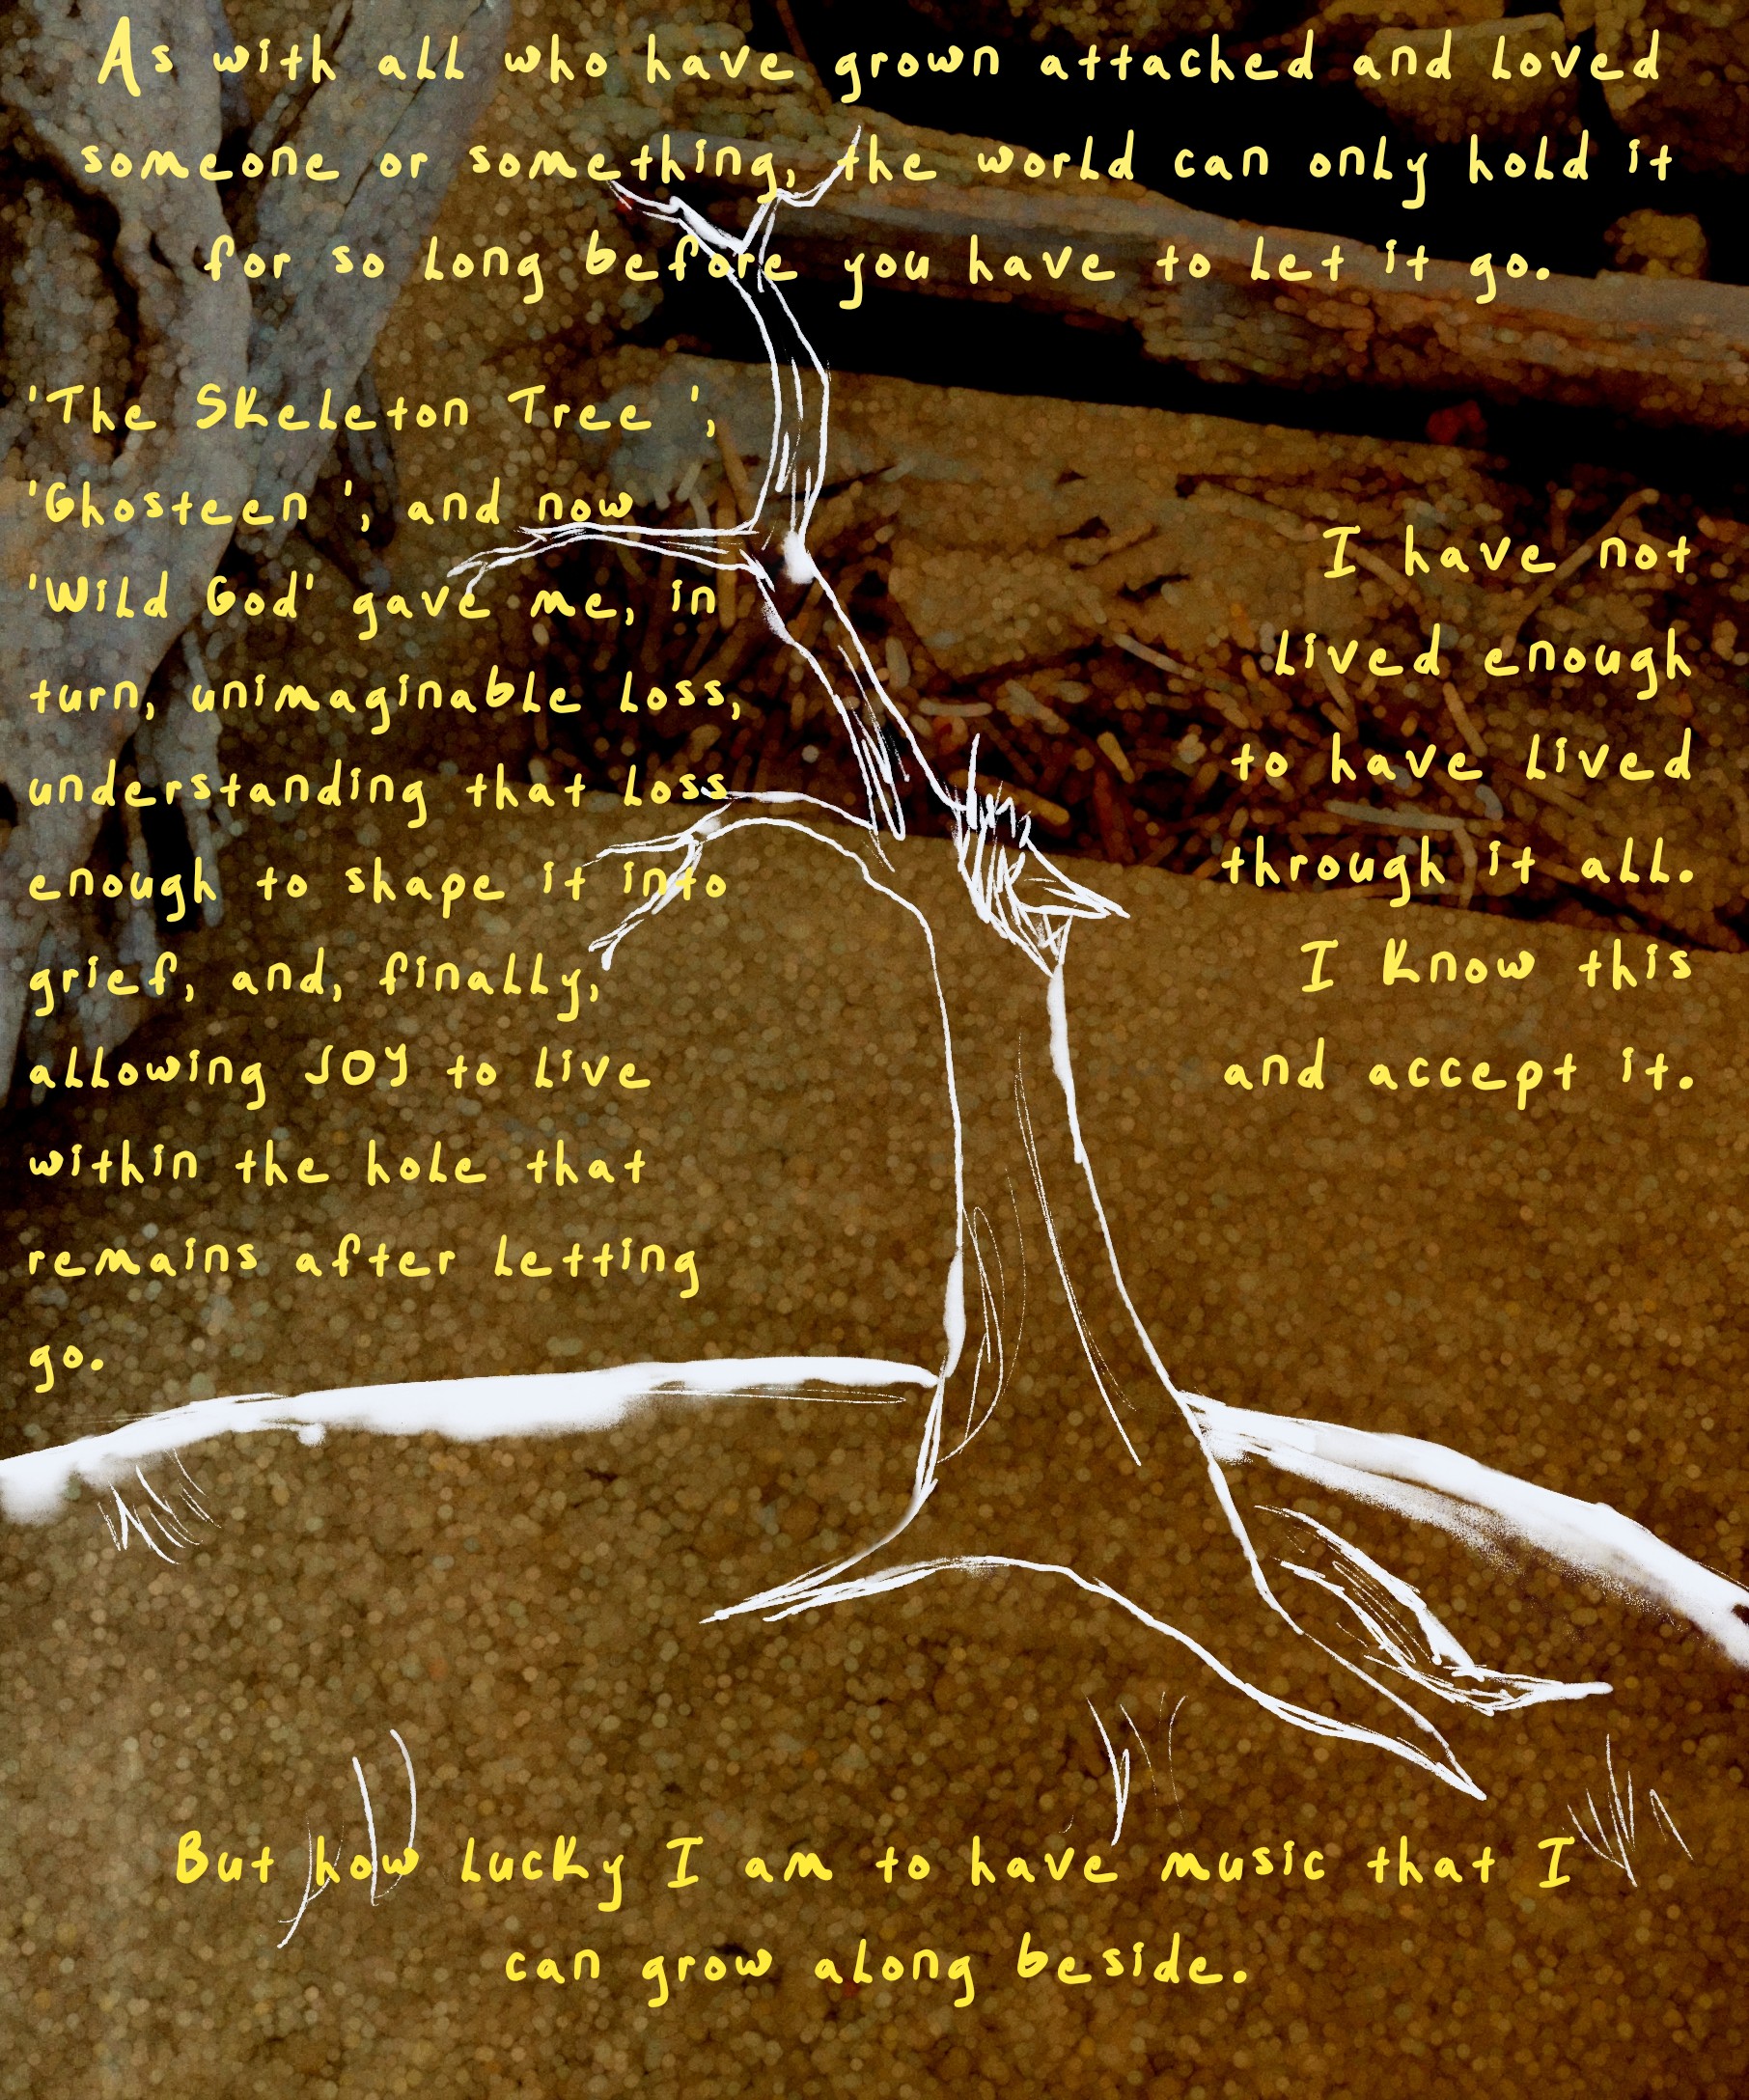 As with all who have grown attached and loved
someone or something, the world can only hold it
for so long before you have to let it go.
'The Skeleton Tree',
'Ghosteen', and now
'Wild God' gave me, in
turn, unimaginable loss,
understanding that loss
enough to shape it into
grief, and, finally,
allowing JOY to live
within the hole that
remains after letting
go.
I have not
lived enough
to have lived
through it all.
I know this
and accept it.
But how lucky I am to have music that I
can grow along beside.